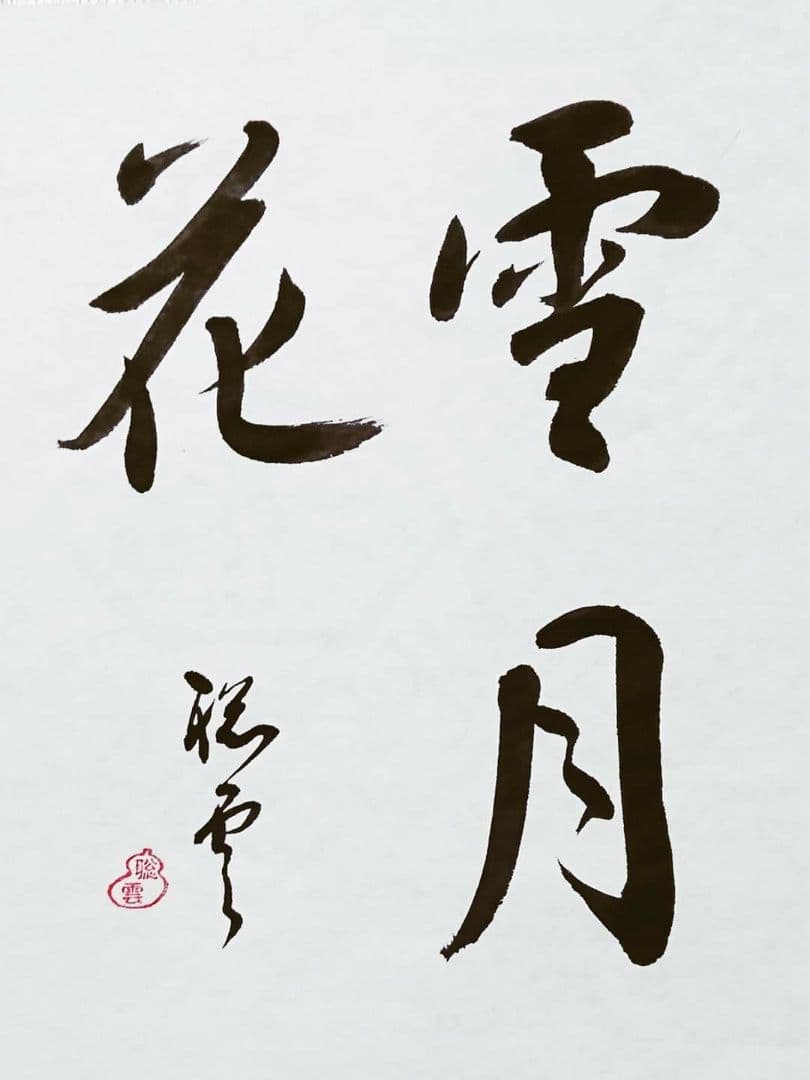 雪月
花
聡雲
聡雲